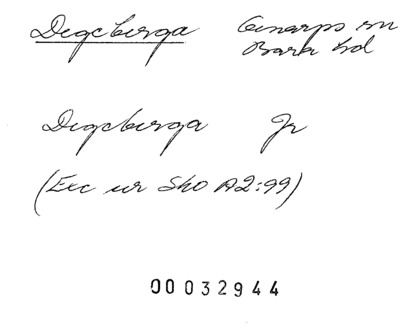 Degeberga Genarps sn
Bara hd
Degeberga Jr
(Exc ur SkO A2:99)
00032944